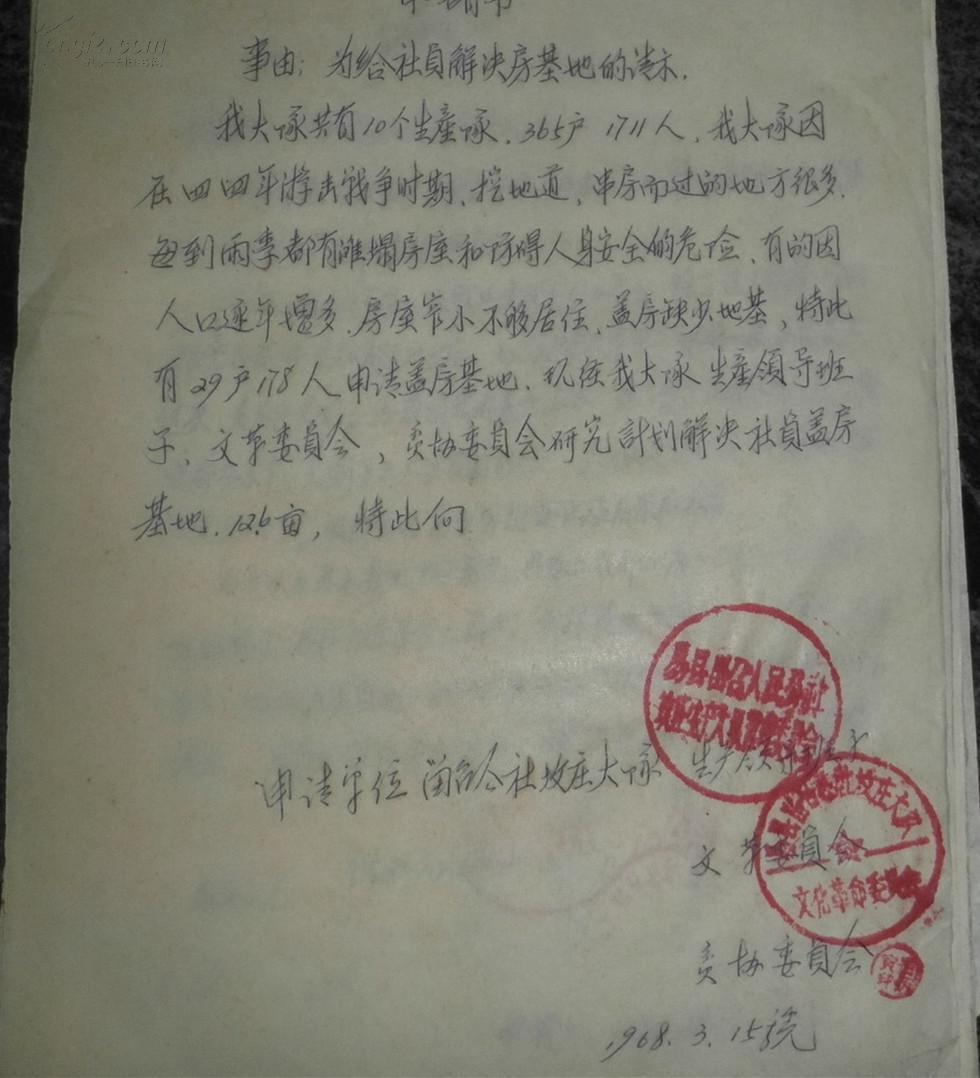 申请书
事由：为给社員解决房基地的请示.
我大队共有10个生產队.365户1711人.我大队因
在四四年游击战争时期、挖地道,串房而过的地方很多.
每到雨季都有滩塌房座和防碍人身安全的危险、有的因
人口逐年增多.房屋窄小不够居住、盖房缺少地基,特此
有29户178人申请盖房基地.现侯我大队生產領导班
子、文革委員会,贫协委員会研究計划解决社員盖房
基地.12.6亩,特此向
易县 人民公社
申请单位 公社坟庄大队 生产领导班子
公社坟庄大队
文革委員会
文化革命委員会
贫协委員会
1968.3.15号